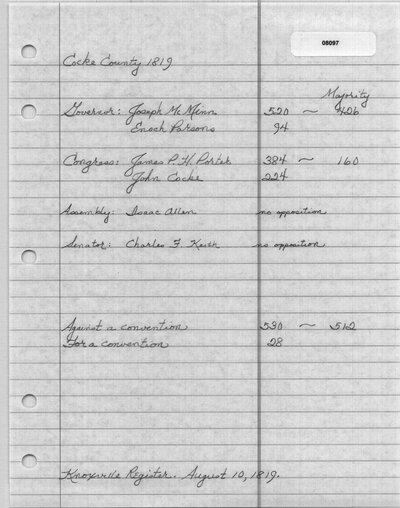 08097
Cocke County 1819
Majority
Governor: Joseph McMinn 520 ~ 426
Enoch Parsons 94
Congress: James P. H. Porter 384 ~ 160
John Cocke 224
Assembly: Isaac Allen no opposition
Senator: Charles F. Keith no opposition
Against a convention 530 ~ 512
For a convention 28
Knoxville Register. August 10, 1819.